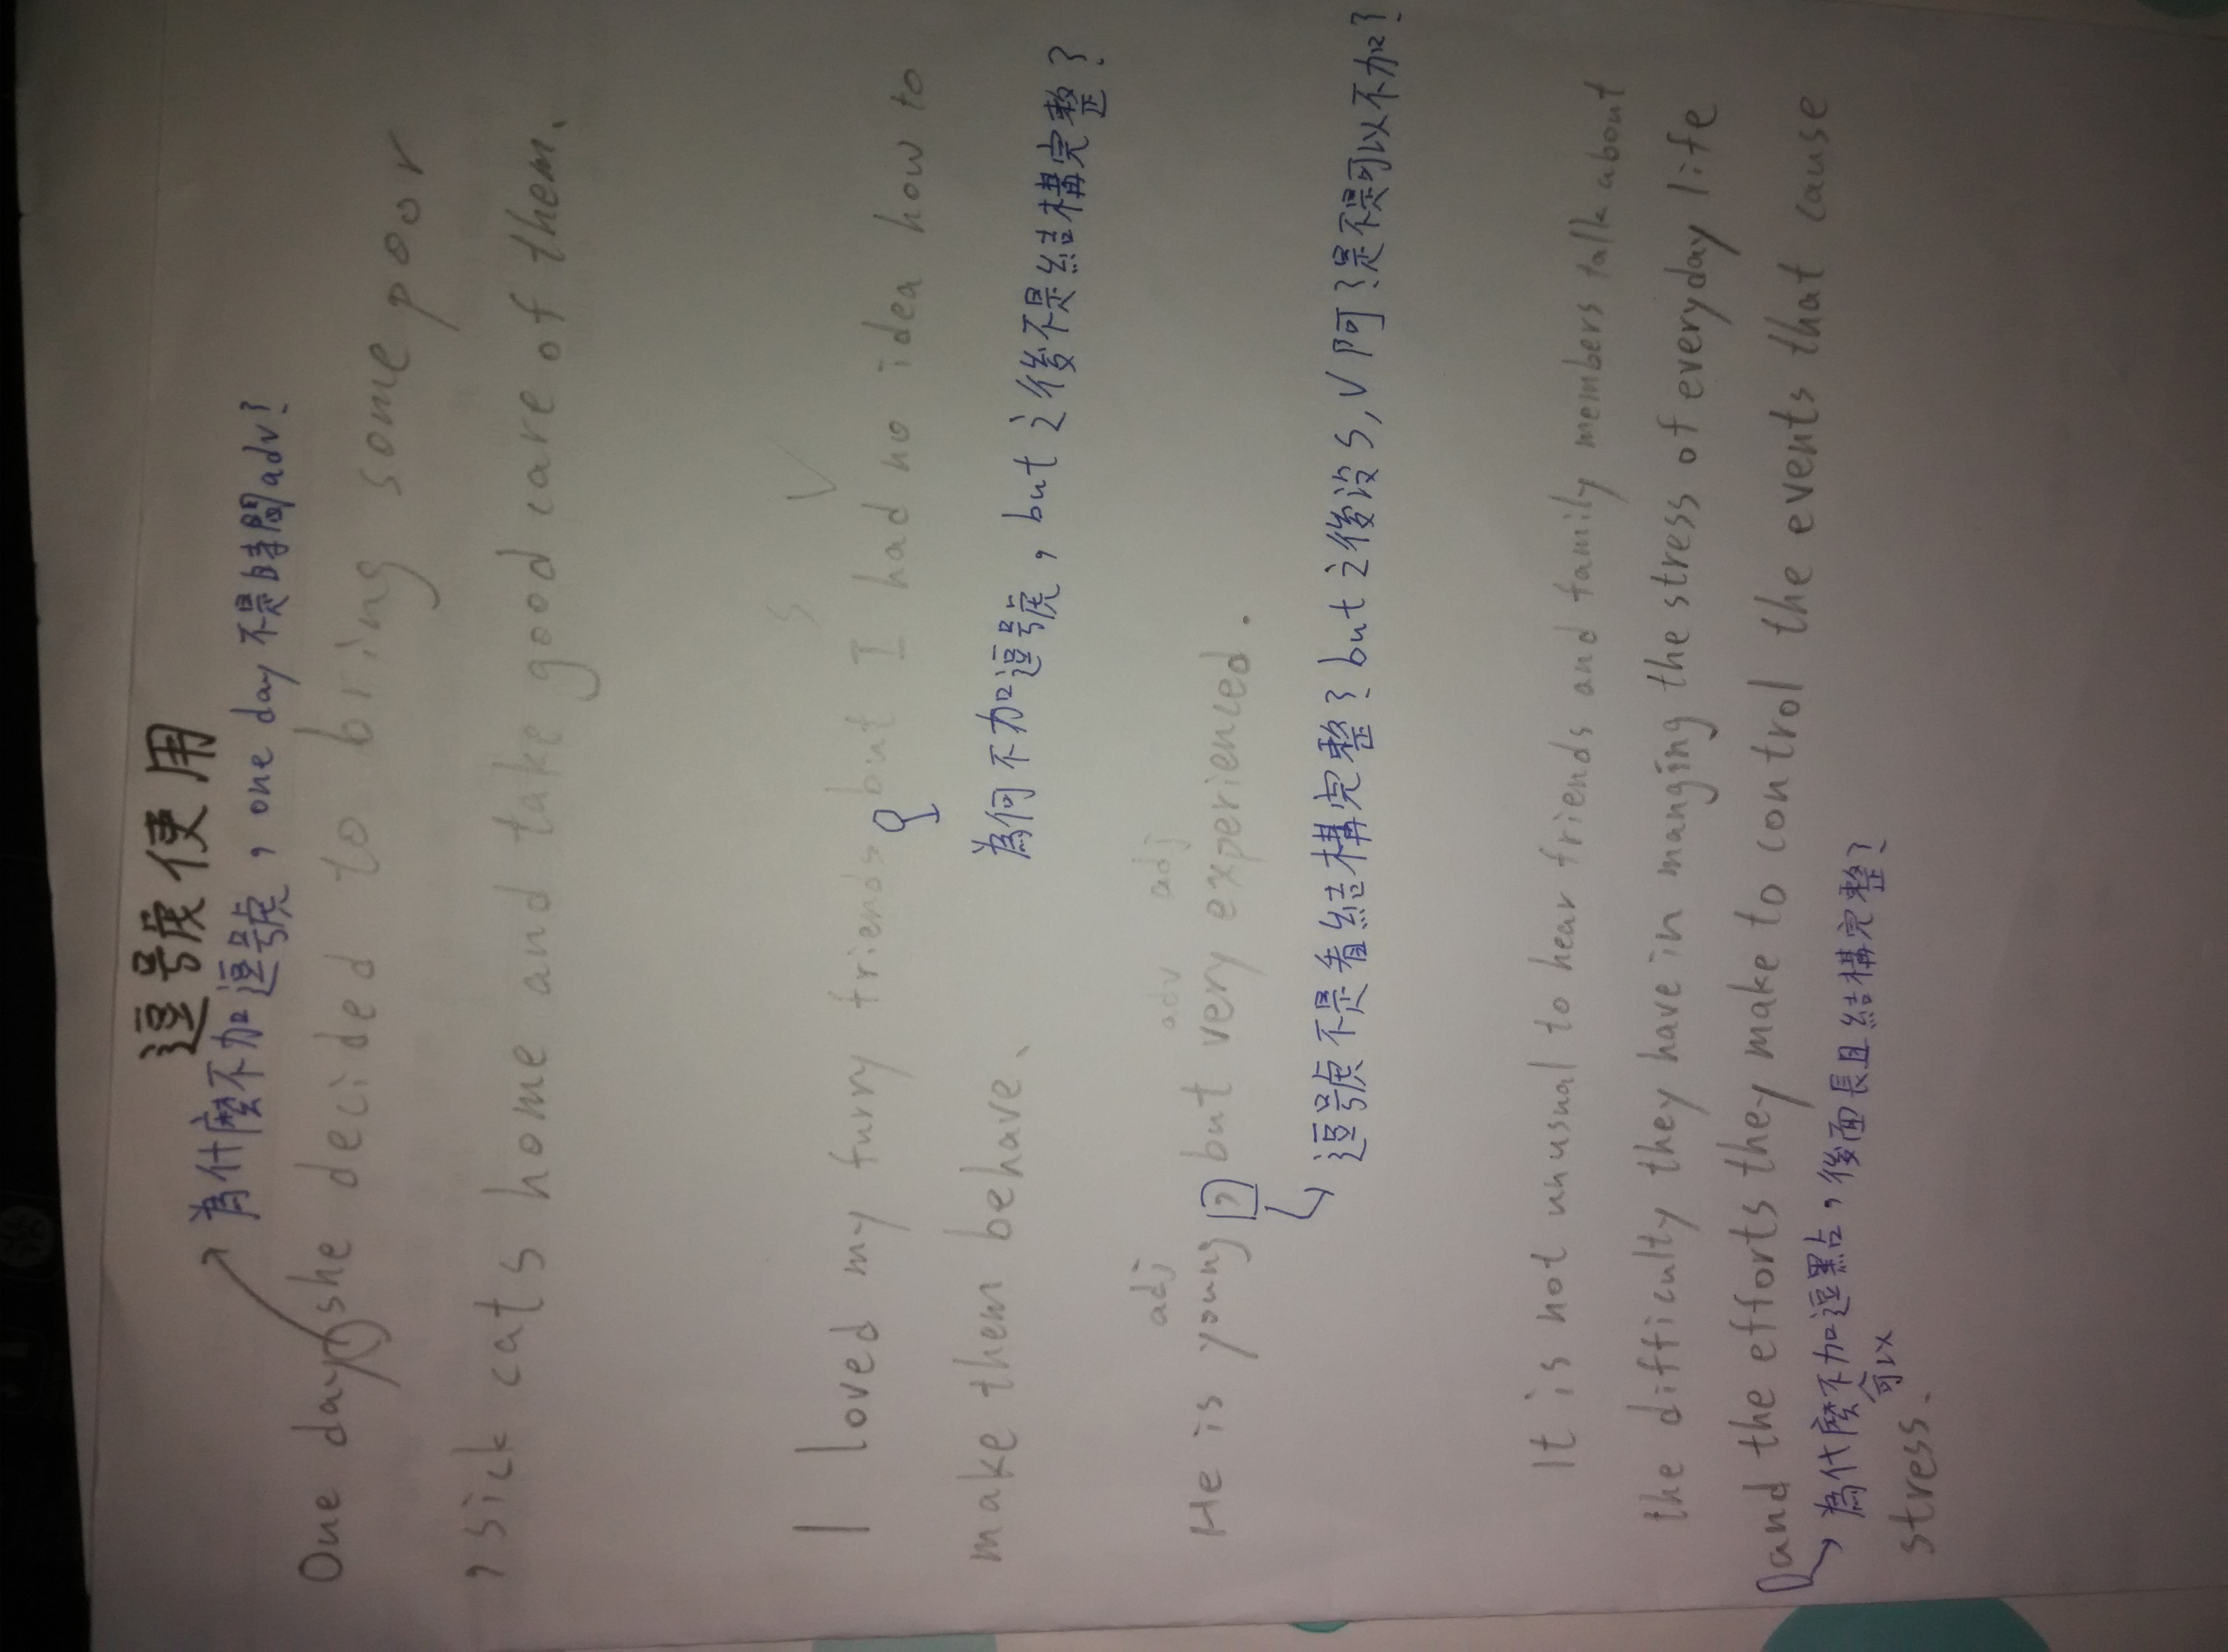 逗號使用
為什麼不加逗號，one day不是時間adv?
One day she decided to bring some poor
, sick cats home and take good care of them、
S V
I loved my furry friends but I had no idea how to
為何不加逗號，but之後不是結構完整?
make them behave、
adj adv adj
He is young, but very experienced.
逗號不是看結構完整? but之後沒S,V阿?是不是可以不加?
It is not unusual to hear friends and family members talk about
the difficulty they have in manging the stress of everyday life
and the efforts they make to control the events that cause
為什麼不加逗點，後面長且結構完整?
可以
stress.